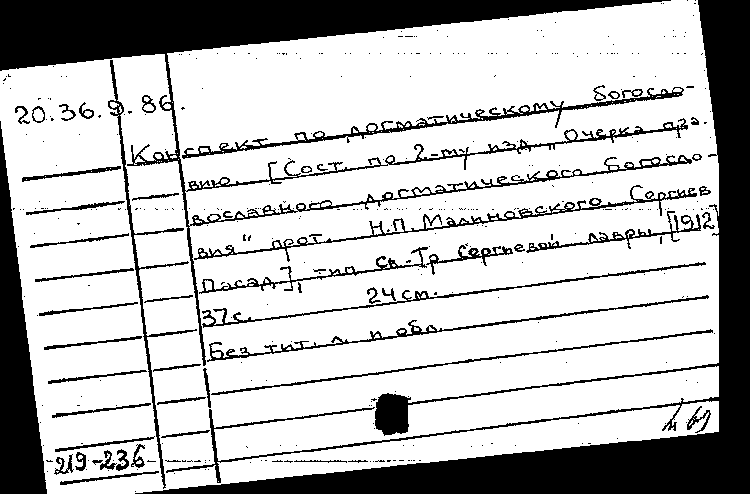 20.36.9.86.
Конспект по догматическому богосло-
вию. [Сост. по 2-му изд. „Очерка пра-
вославного догматического богосло-
вия" прот. Н.П. Малиновского. Сергиев
Пасад], тип. Св.-Тр. Сергиевой лавры, [1912]
37 с. 24 см.
Без тит. л. и обл.
219-236